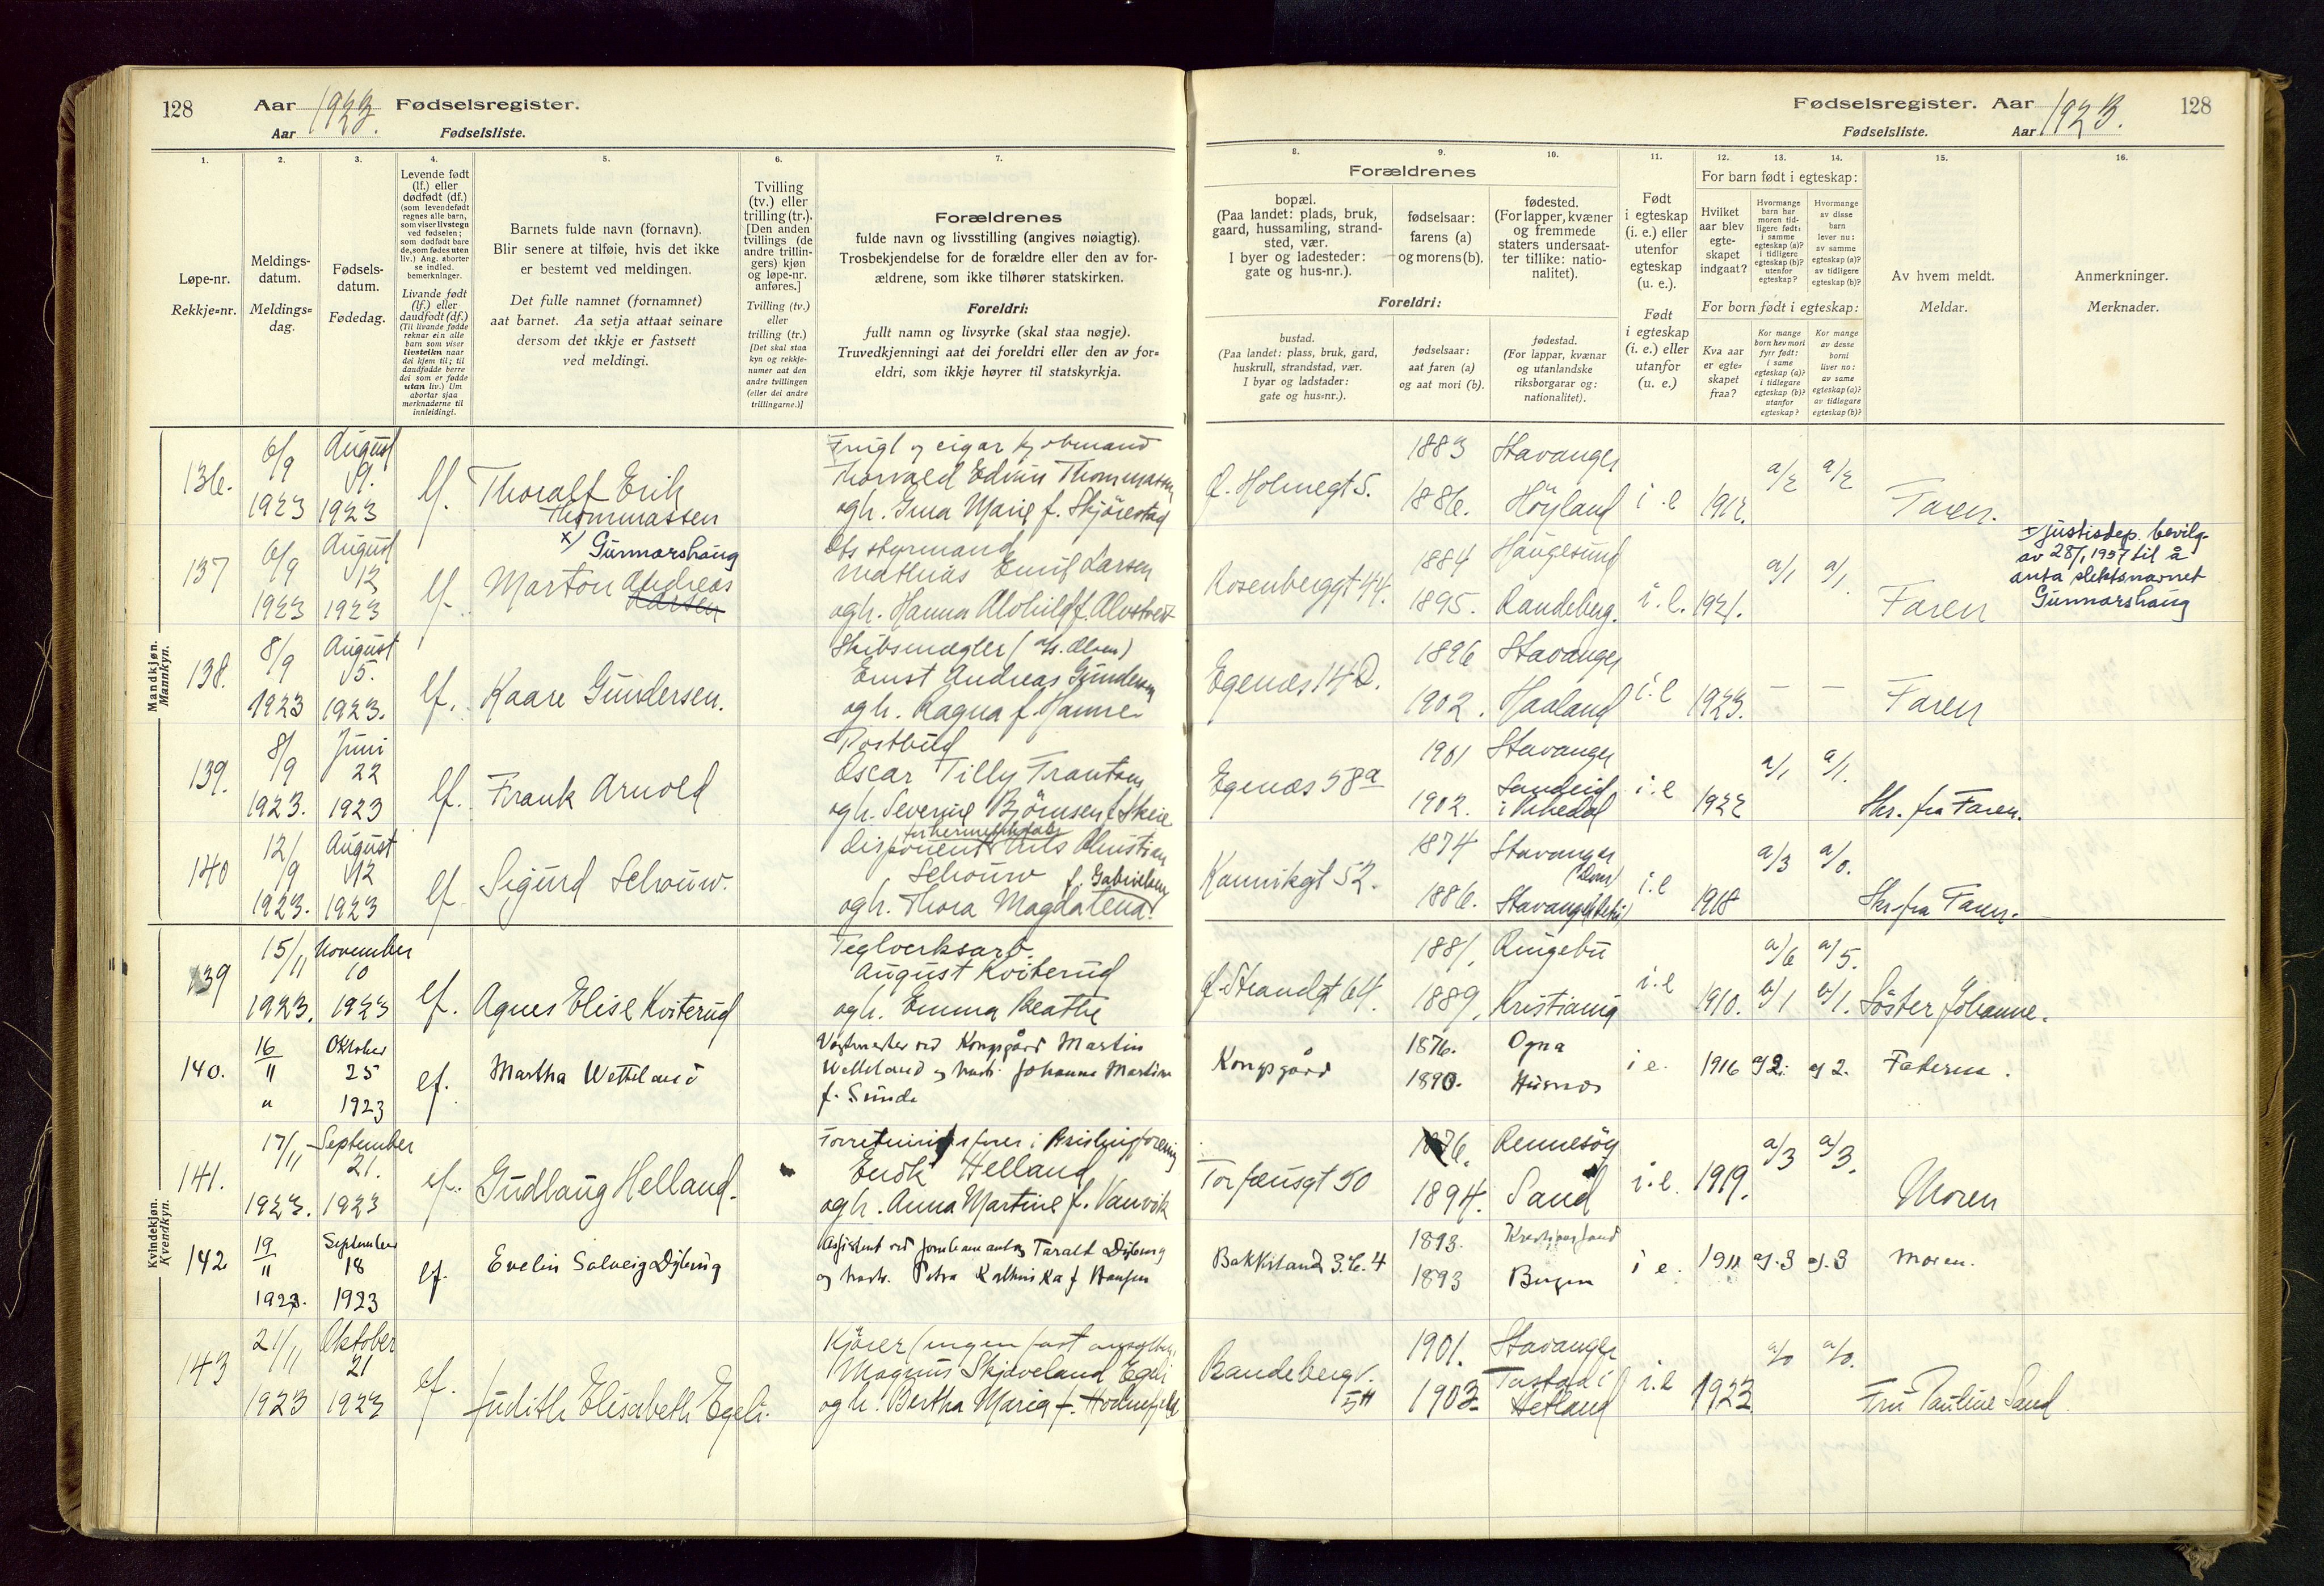 128 Aar 1923. Fødselsregister.
Aar Fødselsliste.
Fødselsregister. Aar 1923. 128
Fødselsliste. Aar
1. 2. 3. 4. 5. 6. 7.
Løpe-nr.
Rekkje=nr.
Meldings-
datum.
Meldings=
dag.
Fødsels-
datum.
Fødedag.
Levende født
(lf.) eller
dødfødt (df.)
(som levendefødt
regnes alle barn,
som viser livstegn
ved fødselen;
som dødfødt bare
de, som fødes uten
liv.) Ang. aborter
se indled.
bemerkninger.
Livande født
(lf.) eller
daudfødt (df.)
(Til livande fødde
reknar ein alle
barn som viser
livsteikn naar
dei kjem til; til
daudfødde berre
dei som er fødde
utan liv.) Um
abortar sjaa
merknaderne til
innleidingi.
Barnets fulde navn (fornavn).
Blir senere at tilføie, hvis det ikke
er bestemt ved meldingen.
Det fulle namnet (fornamnet)
aat barnet. Aa setja attaat seinare
dersom det ikkje er fastsett
ved meldingi.
Tvilling
(tv.) eller
trilling (tr.).
[Den anden
tvillings (de
andre trillin-
gers) kjøn
og løpe-nr.
anføres.]
Tvilling (tv.)
eller
trilling (tr.)
[Det skal staa
kyn og rekkje-
numer aat den
andre tvillingen
(eller dei andre
trillingarne.)]
Forældrenes
fulde navn og livsstilling (angives nøiagtig).
Trosbekjendelse for de forældre eller den av for-
ældrene, som ikke tilhører statskirken.
Foreldri:
fullt namn og livsyrke (skal staa nøgje).
Truvedkjenningi aat dei foreldri eller den av for=
eldri, som ikkje høyrer til statskyrkja.
8. 9. 10. 11. 12. 13. 14. 15. 16.
Forældrenes
bopæl.
(Paa landet: plads, bruk,
gaard, hussamling, strand-
sted, vær.
I byer og ladesteder:
gate og hus-nr.).
fødselsaar:
farens (a)
og morens (b).
fødested.
(For lapper, kvæner
og fremmede
staters undersaat-
ter tillike: natio-
nalitet).
Foreldri:
bustad.
(Paa landet: plass, bruk, gard,
huskrull, strandstad, vær.
I byar og ladstader:
gate og hus=nr.).
fødselsaar:
aat faren (a)
og aat mori (b).
fødestad.
(For lappar, kvænar
og utanlandske
riksborgarar og:
nationalitet).
Født
i egteskap
(i. e.) eller
utenfor
egteskap
(u. e.).
Født
i egteskap
(i. e.) eller
utanfor
(u. e.)
For barn født i egteskap:
Hvilket
aar blev
egte-
skapet
indgaat?
Hvormange
barn har
moren tid-
ligere født:
i samme
egteskap (a)?
i tidligere
egteskap (b)?
utenfor
egteskap?
Hvormange
av disse
barn
lever nu:
av samme
egteskap (a)?
av tidligere
egteskap (b)?
For born født i egteskap:
Kva aar
er egte-
skapet
fraa?
Kor mange
born hev mori
fyrr født:
i same
egteskap (a)?
i tidlegare
egteskap (b)?
utanfor
egteskap?
Kor mange
av desse
borni
liver no:
av same
egteskap (a)?
av tidlegare
egteskap (b)?
Av hvem meldt.
Meldar.
Anmerkninger.
Merknader.
Mandkjøn.
Mannkyn.
136. 6/9 1923 August 9. 1923 lf. Thoralf Erik
Thommassen
Thorvald Edvin Thommassen
og h. Gina Marie f. Skjörestad
Holmegt 5. 1883 Stavanger
1886. Höyland i.e 1912. a/2 a/2 Faren.
137 6/9 1923 August 12 1923 lf. x) Gunnarshaug
Marton Andreas
Larsen
styrmand
Mathias Emil Larsen
og h. Hanna Alvhild f.
Rosenberggt 44. 1884 Haugesund
1895. Randeberg. i.e. 1921. a/1 a/1. Faren
x justisdep. bevilg.
av 28/1 1957 til å
anta slektsnavnet
Gunnarshaug
138. 8/9 1923 August 5. 1923. lf. Kaare Gundersen.
Skibsmægler
Ernst Andreas Gundersen
og h. Ragna f. Hanne
Egenæs 14 1896 Stavanger
1902. Haaland i.e 1923. – – Faren
139. 8/9 1923. Juni 22 1923 lf. Frank Arnold
Postbud
Oscar Tilly
og h. Severine Björnsen f. Skeie
Egenæs 58a 1901 Stavanger
1902. Sandeid
i Vikedal i.e 1922 a/1 a/1. Skr. fra Faren.
140 12/9 1923. August 12 1923 lf Sigurd Schouw.
Disponent Nils Christian
Schouw f. Gabrielsen
og h. Thora Magdalena
Kannikgt 52. 1874 Stavanger
(Dom)
1886. Stavanger i.e 1918 a/3 a/0. Skr. fra Faren.
Kvindekjøn.
Kvendkyn.
139 15/11 1923. November 10 1923 lf. Agnes Elise Kviterud
Teglverksarb.
August Kviterud
og h. Emma Beathe
Strandgt 64. 1881. Ringebu
1889. Kristiania i.e 1910. a/6 b/1 a/5. b/1. Söster Johanne.
140. 16/11 " Oktober 25 1923 lf. Martha Wetteland
Vagtmester ved Kongsgård Martin
Wetteland og hust. Johanna Martine
f. Sunde
Kongsgård 1876. Ogna
1890. Husnes i e. 1916 a) 2. a) 2. Faderen.
141. 17/11 1923. September 21. 1923 lf. Gudlaug Helland.
Forretningsförer i Brislingforening
Endre Helland
og h. Anna Martine f. Vanvik
Torfæusgt 50 1876. Rennesöy
1894. Sand i.e. 1919. a/3 a/3. Moren
142. 19/11 1923. September 18 1923 lf. Evelin Solveig Dybing
Assistent ved Taralt Dybing
og hust. Petra Kathinka f Hansen
Bakkeland 3.b.4 1893. Kristiansand
1893 Bergen i e. 1911 a) 3 a) 3 Moren.
143 21/11 1923 Oktober 21 1923 lf. Judith Elisabeth Egeli.
Kjörer (ingen fast ansættelse.
Magnus Skjæveland Egeli
og h. Bertha Maria f. Hodnefjeld
Randebergv.
5II 1901. Stavanger
1903. Tastad i
Hetland i.e 1923 a/0 a/0. Fru Pauline Sand